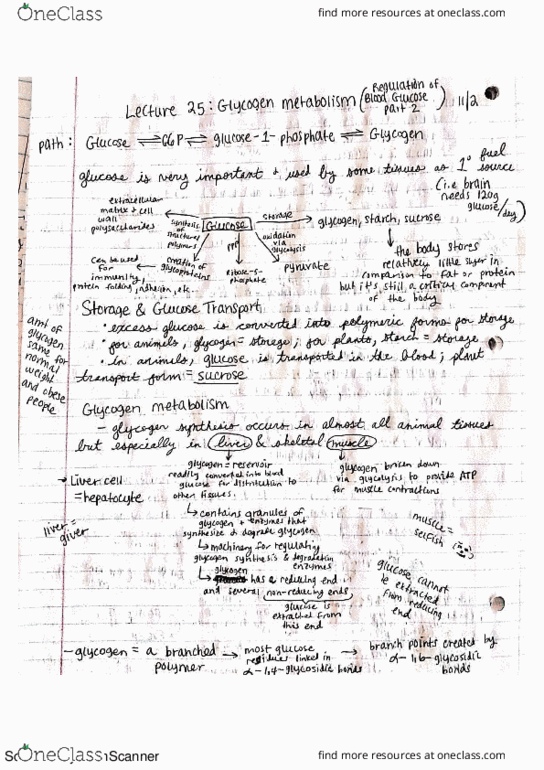 OneClass
find more resources at oneclass.com
Lecture 25: Glycogen metabolism (Regulation of Blood Glucose Part 2) 11/2
path: Glucose ⇌ G6P ⇌ glucose-1-phosphate ⇌ Glycogen
glucose is very important + used by some tissues as 1° fuel source
(i.e. brain needs 120g glucose/day)
extracellular matrix + cell wall polysaccharides
synthesis of structural polymers
Glucose
storage
glycogen, starch, sucrose
the body stores relatively little sugar in comparison to fat or protein but it's still a critical component of the body
oxidation via glycolysis
pyruvate
PPP
ribose-5-phosphate
creation of glycoproteins
can be used for immunity, protein folding, adhesion, etc.
Storage & Glucose Transport
• excess glucose is converted into polymeric forms for storage
• for animals, glycogen = storage; for plants, starch = storage
• in animals, glucose is transported in the blood; plant
transport form = sucrose
amt of glycogen same for normal weight and obese people
Glycogen metabolism
- glycogen synthesis occurs in almost all animal tissues
but especially in liver & skeletal muscle
glycogen = reservoir
readily converted into blood
glucose for distribution to
other tissues.
glycogen broken down
via glycolysis to provide ATP
for muscle contractions
Liver cell
= hepatocyte
liver = giver
contains granules of
glycogen + enzymes that
synthesize & degrade glycogen
machinery for regulating
glycogen synthesis & degradation
enzymes
glycogen
has a reducing end
and several non-reducing ends
glucose is
extracted from
this end
muscle = selfish
glucose cannot
be extracted
from reducing
end
- glycogen = a branched polymer → most glucose residues linked in α-1,4-glycosidic bonds → branch points created by α-1,6-glycosidic bonds
OneClass
Scanner
find more resources at oneclass.com